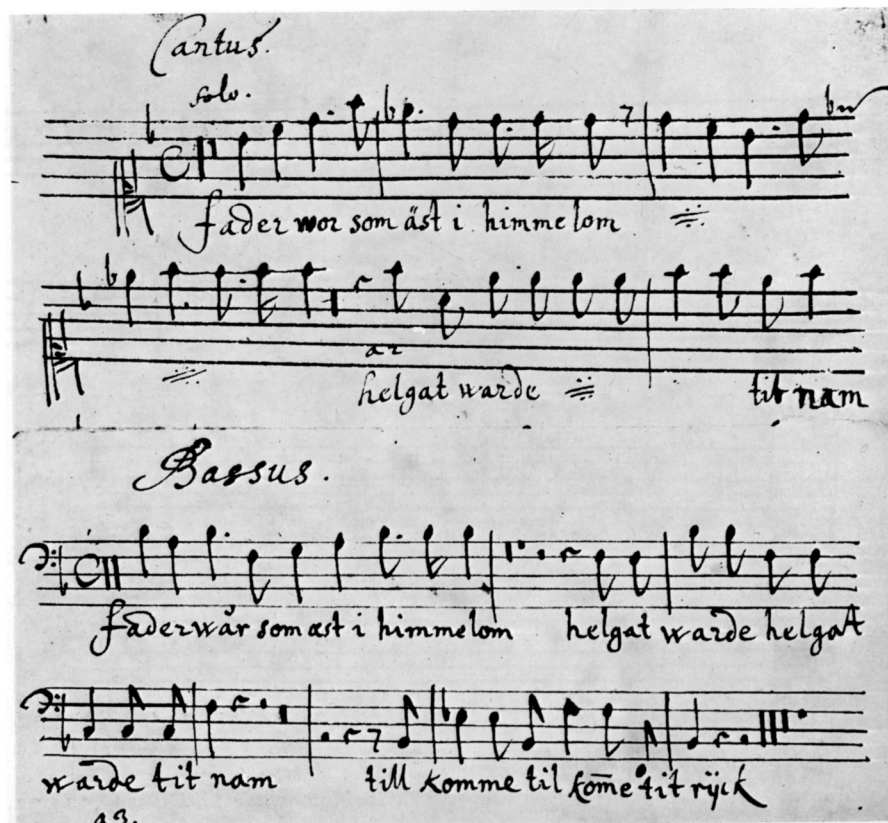 Cantus.
solo.
fader wor som äst i himmelom
ar
helgat warde tit nam
Bassus.
fader wår som æst i himmelom helgat warde helgat
warde tit nam till komme til kom̄e tit rÿck